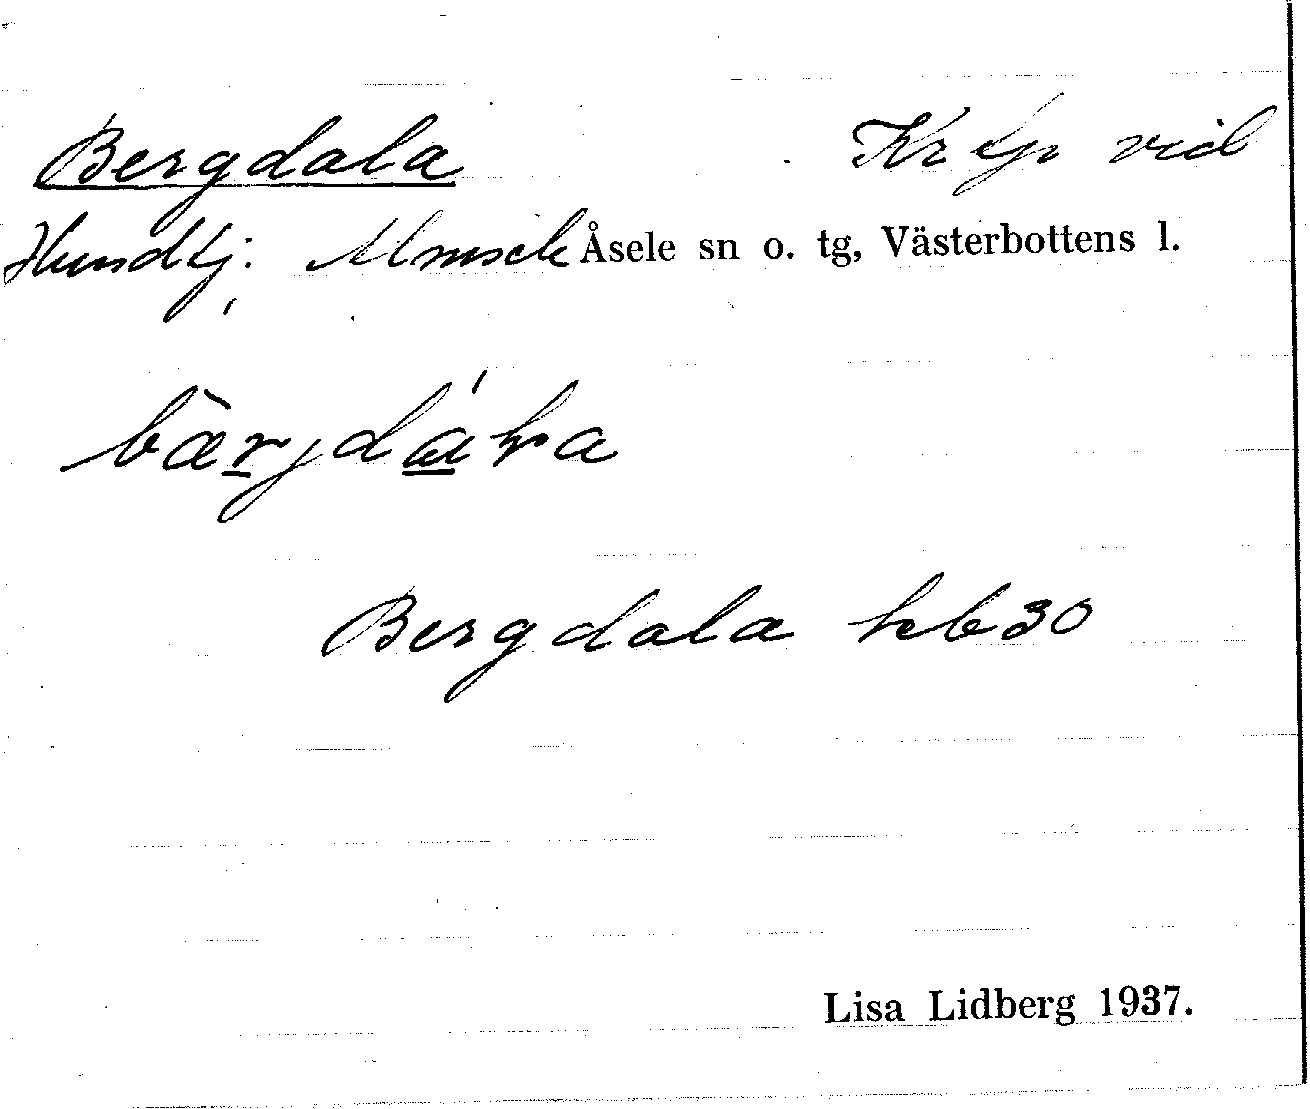 Bergdala Kr lp vid
Hundtj. Almsele Åsele sn o. tg, Västerbottens l.
bærjdáła
Bergdala hb 30
Lisa Lidberg 1937.